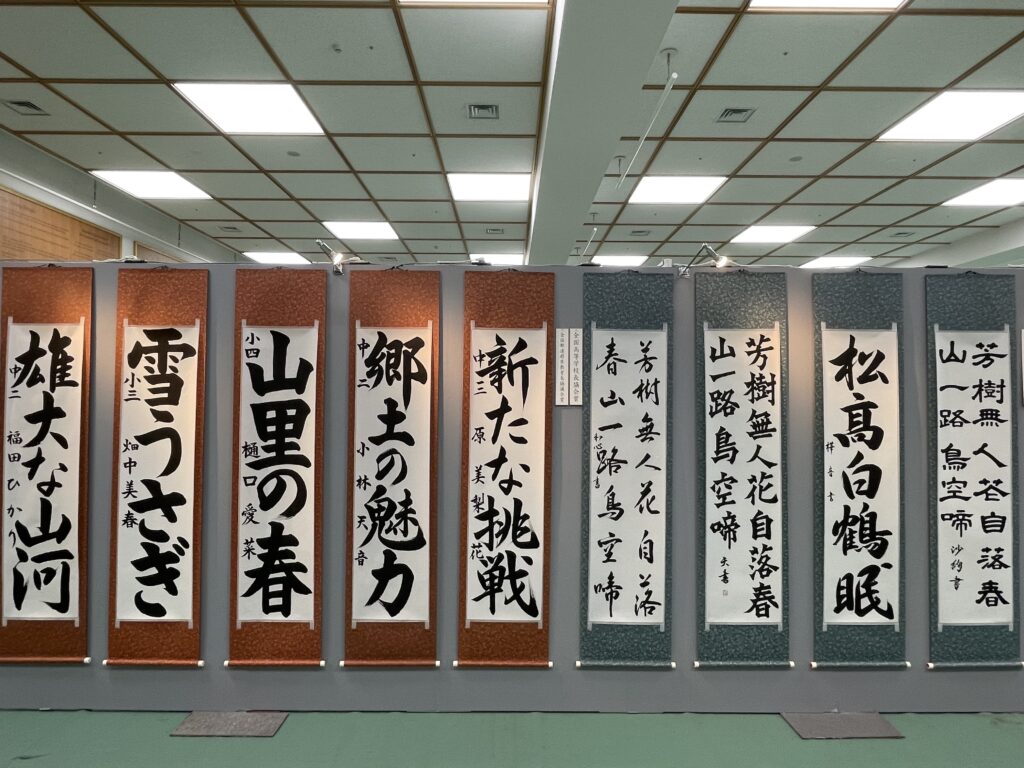 雄大な山河
中二 福田ひかり
雪うさぎ
小三 畑中美春
山里の春
小四 樋口愛菜
郷土の魅力
中二 小林天音
新たな挑戦
中三 原美梨花
全国高等学校長協会賞
全国都道府県教育長協議会賞
芳樹無人花自落
春山一路鳥空啼
和心書
芳樹無人花自落春
山一路鳥空啼
松高白鶴眠
芳樹無人花自落春
山一路鳥空啼